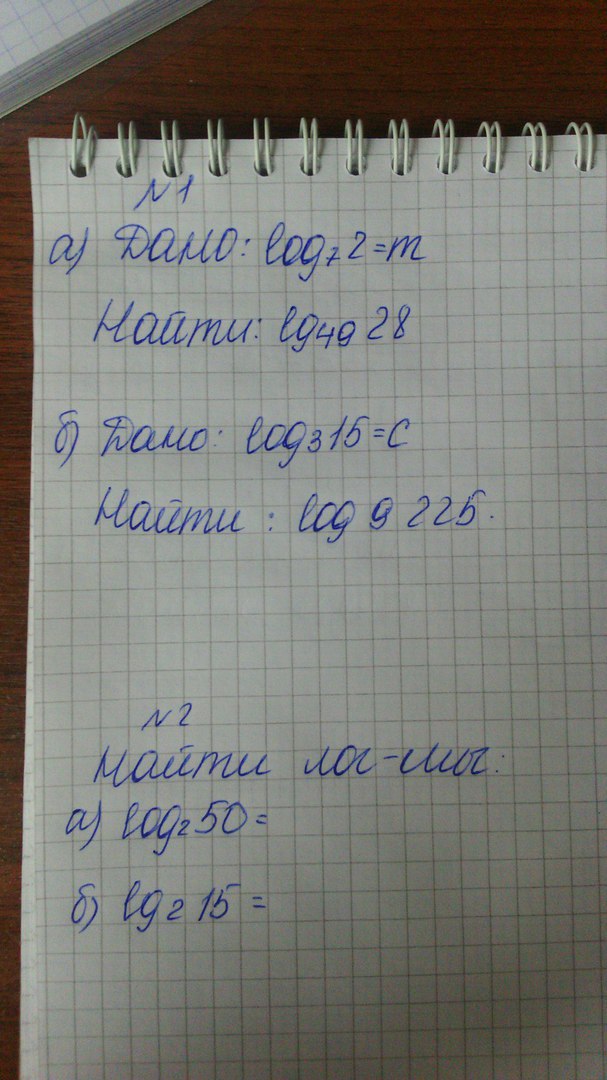 №1
а) Дано: log₇ 2 = m
Найти: lg₄₉ 28
б) Дано: log₃ 15 = c
Найти: log 9 225.
№2
Найти лог-мы:
а) log₂ 50 =
б) lg 2 15 =